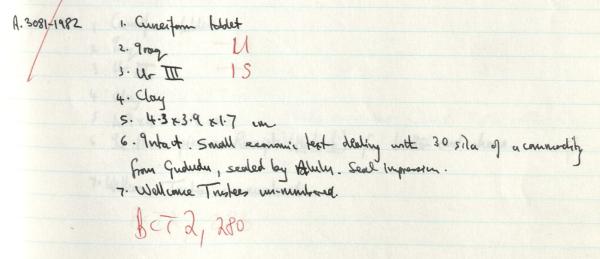 A.3081-1982 1. Cuneiform tablet
2. Iraq U
3. Ur III IS
4. Clay
5. 4.3 x 3.9 x 1.7 cm
6. Intact. Small economic text dealing with 30 sila of a commodity
from Gududu, sealed by Lulu. Seal Impression.
7. Wellcome Trustees un-numbered.
BCT 2, 280